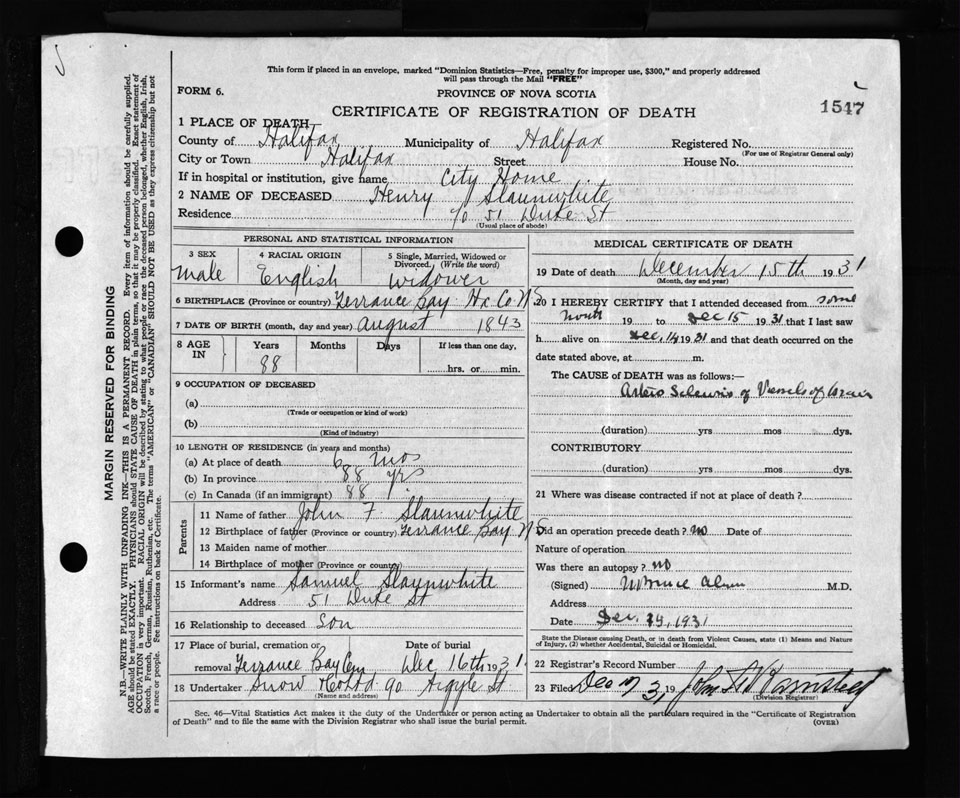 This form if placed in an envelope, marked "Dominion Statistics—Free, penalty for improper use, $300," and properly addressed
will pass through the Mail "FREE"
FORM 6.
PROVINCE OF NOVA SCOTIA
1547
CERTIFICATE OF REGISTRATION OF DEATH
1 PLACE OF DEATH—
County of Halifax Municipality of Halifax Registered No.
(For use of Registrar General only)
City or Town Halifax Street House No.
If in hospital or institution, give name City Home
2 NAME OF DECEASED Henry Slaunwhite
Residence c/o 51 Duke St
(Usual place of abode)
PERSONAL AND STATISTICAL INFORMATION
3 SEX 4 RACIAL ORIGIN 5 Single, Married, Widowed or
Divorced. (Write the word)
Male English Widower
6 BIRTHPLACE (Province or country) Terrance Bay Hx Co N S
7 DATE OF BIRTH (month, day and year) August 1843
8 AGE IN Years Months Days If less than one day,
88 hrs. or min.
9 OCCUPATION OF DECEASED
(a)
(Trade or occupation or kind of work)
(b)
(Kind of industry)
10 LENGTH OF RESIDENCE (in years and months)
(a) At place of death 6 mos
(b) In province 88 yrs
(c) In Canada (if an immigrant) 88
Parents
11 Name of father John F Slaunwhite
12 Birthplace of father (Province or country) Terrance Bay N S
13 Maiden name of mother
14 Birthplace of mother (Province or country)
15 Informant's name Samuel Slaunwhite
Address 51 Duke St
16 Relationship to deceased Son
17 Place of burial, cremation or Date of burial
removal Terrance Bay Cem Dec 16th 1931
18 Undertaker Snow Co Ltd 90 Argyle St
(Name and address)
MEDICAL CERTIFICATE OF DEATH
19 Date of death December 15th 1931
(Month, day and year)
20 I HEREBY CERTIFY that I attended deceased from some
19 to Dec 15 1931 that I last saw
h alive on Dec. 14 1931 and that death occurred on the
date stated above, at m.
The CAUSE of DEATH was as follows:—
Arterio Sclerosis of Vessels of
(duration) yrs mos dys.
CONTRIBUTORY
(duration) yrs mos dys.
21 Where was disease contracted if not at place of death?
Did an operation precede death? No Date of
Nature of operation
Was there an autopsy? No
(Signed) M.D.
Address
Date Dec. 1931
State the Disease causing Death, or in death from Violent Causes, state (1) Means and Nature
of Injury, (2) whether Accidental, Suicidal or Homicidal.
22 Registrar's Record Number
23 Filed Dec 19 31 John
(Division Registrar)
Sec. 46—Vital Statistics Act makes it the duty of the Undertaker or person acting as Undertaker to obtain all the particulars required in the "Certificate of Registration
of Death" and to file the same with the Division Registrar who shall issue the burial permit.
(OVER)
MARGIN RESERVED FOR BINDING
N.B.—WRITE PLAINLY WITH UNFADING INK—THIS IS A PERMANENT RECORD. Every item of information should be carefully supplied.
AGE should be stated EXACTLY. PHYSICIANS should STATE CAUSE OF DEATH in plain terms, so that it may be properly classified. Exact statement of
OCCUPATION is very important. RACIAL ORIGIN will be described by stating to what people or race the deceased person belonged, whether English, Irish,
Scotch, French, German, Russian, Ruthenian, etc. The terms "AMERICAN" or "CANADIAN" SHOULD NOT BE USED as they express citizenship but not
a race or people. See instructions on back of Certificate.